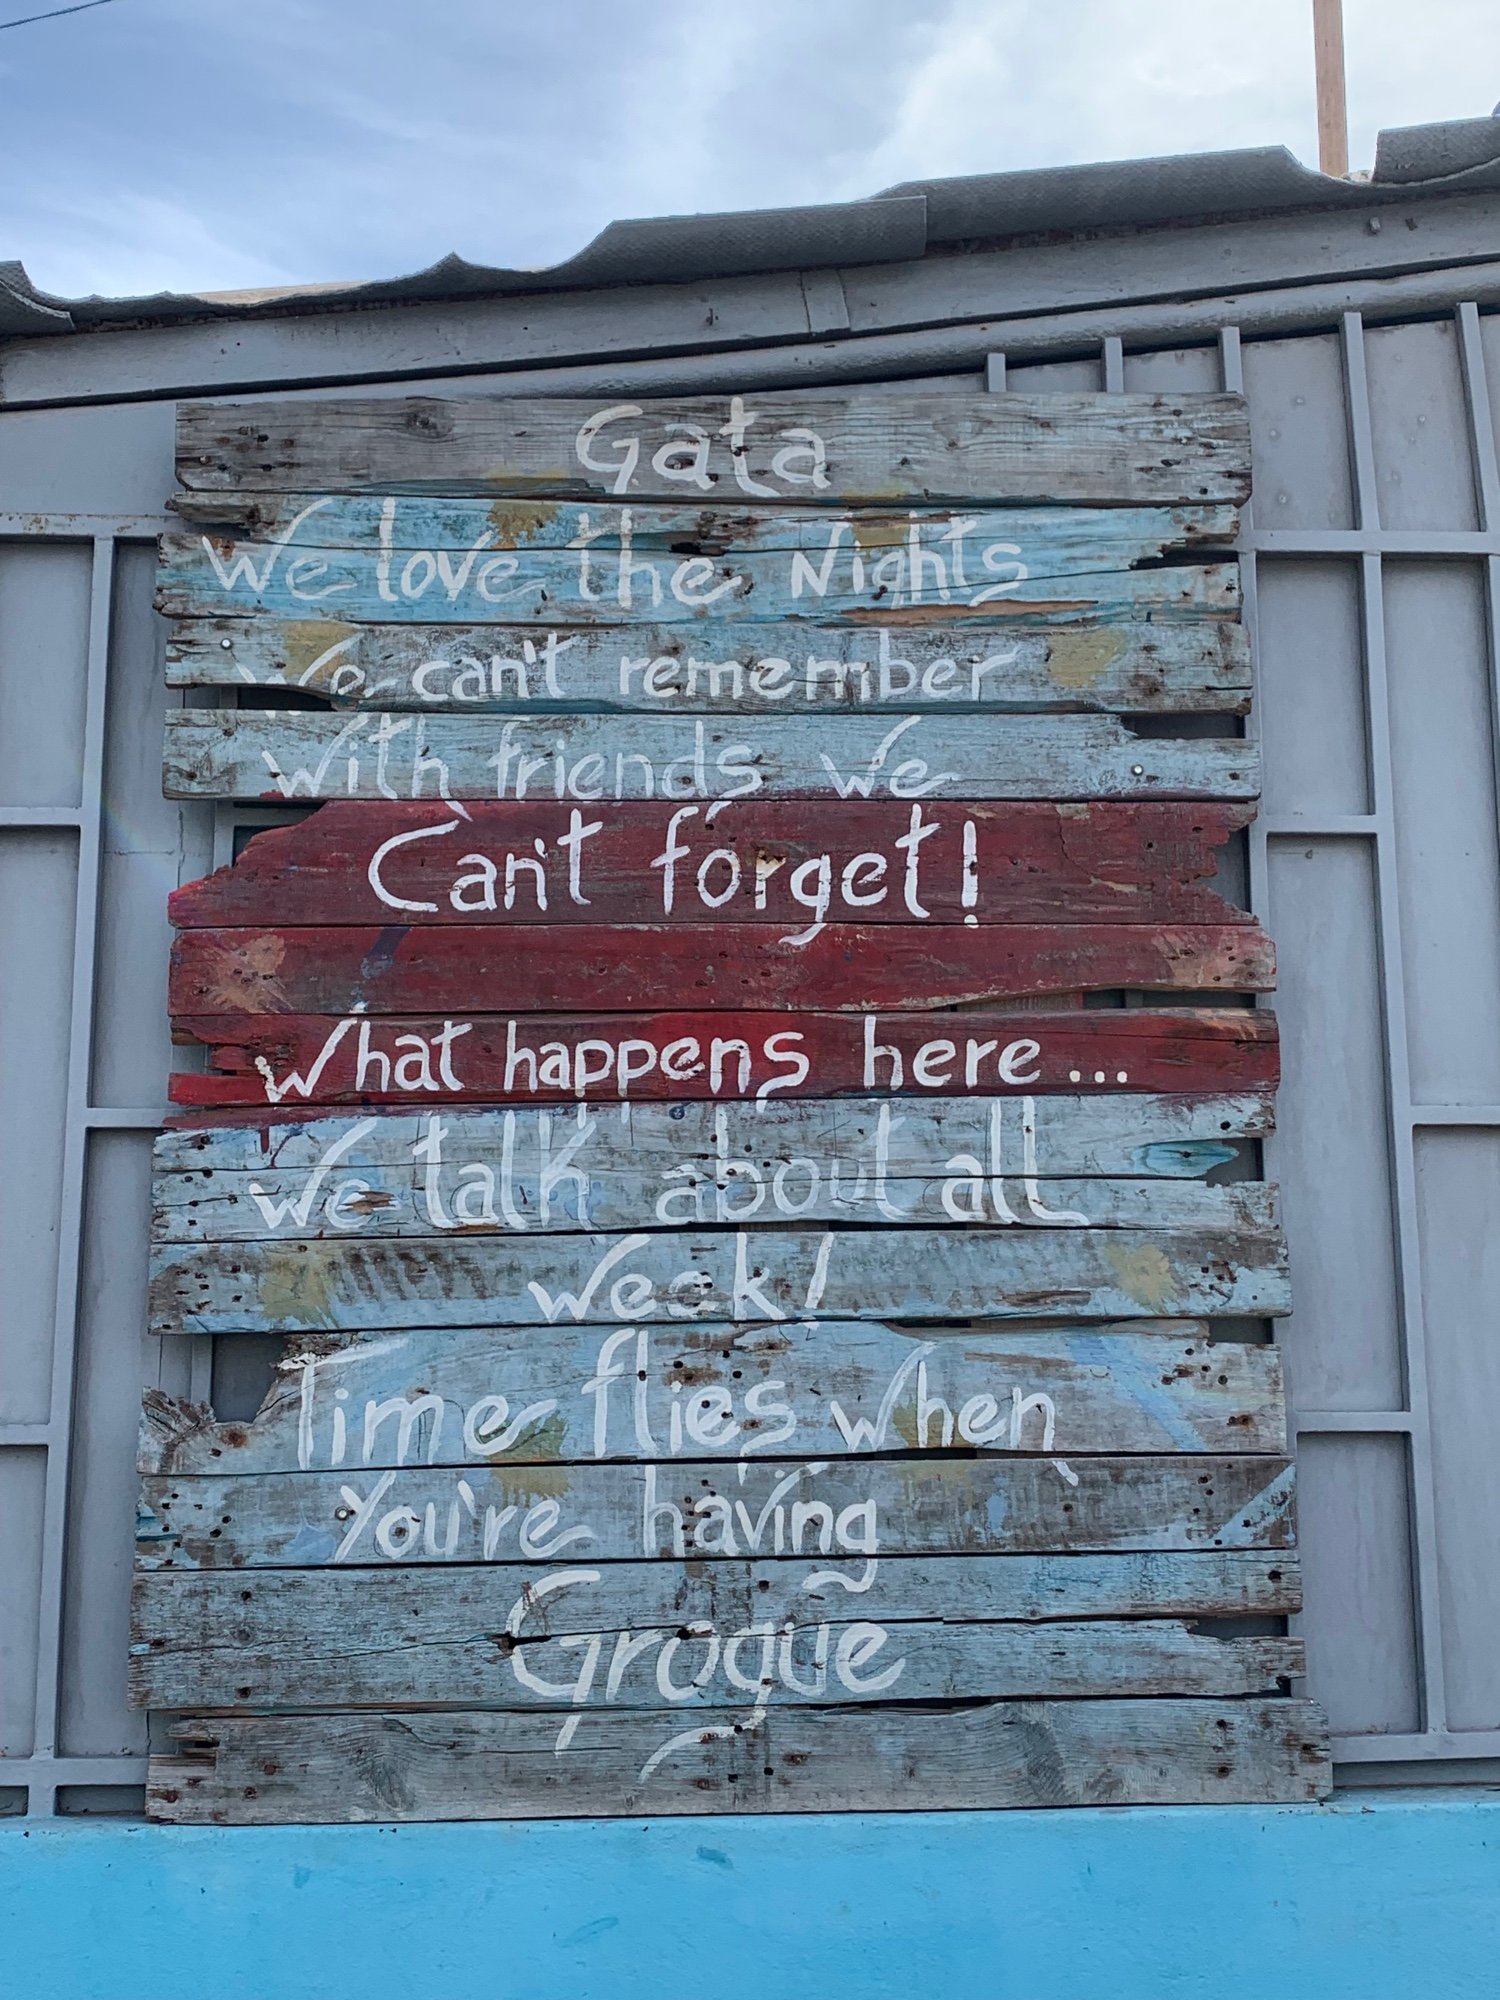 Gata
We love the Nights
We can't remember
With friends we
Can't forget!
What happens here...
We talk about all
Week!
Time flies when
You're having
Grogue